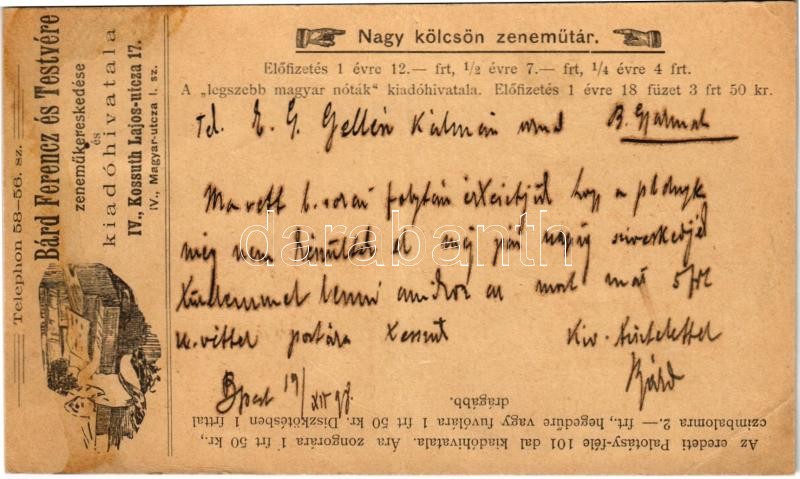 Telephon 58—56. sz.
Bárd Ferencz és Testvére
zeneműkereskedése
és
kiadóhivatala
IV., Kossuth Lajos-utcza 17.
IV., Magyar-utcza 1. sz.
Nagy kölcsön zeneműtár.
Előfizetés 1 évre 12.— frt, 1/2 évre 7.— frt, 1/4 évre 4 frt.
A „legszebb magyar nóták" kiadóhivatala. Előfizetés 1 évre 18 füzet 3 frt 50 kr.
Gellén Kálmán B. Gyarmat
Ma vett b. sorai folytán értesítjük hogy a
még nem készültek el még pár napig
türelemmel lenni 5 frt
postára
Kiv. tisztelettel
Bárd
Bpest 19/XII 98.
Az eredeti Palotásy-féle 101 dal kiadóhivatala. Ára zongorára 1 frt 50 kr.,
czimbalomra 2.— frt., hegedűre vagy fuvolára 1 frt 50 kr. Diszkötésben 1 frttal
drágább.
darabanth